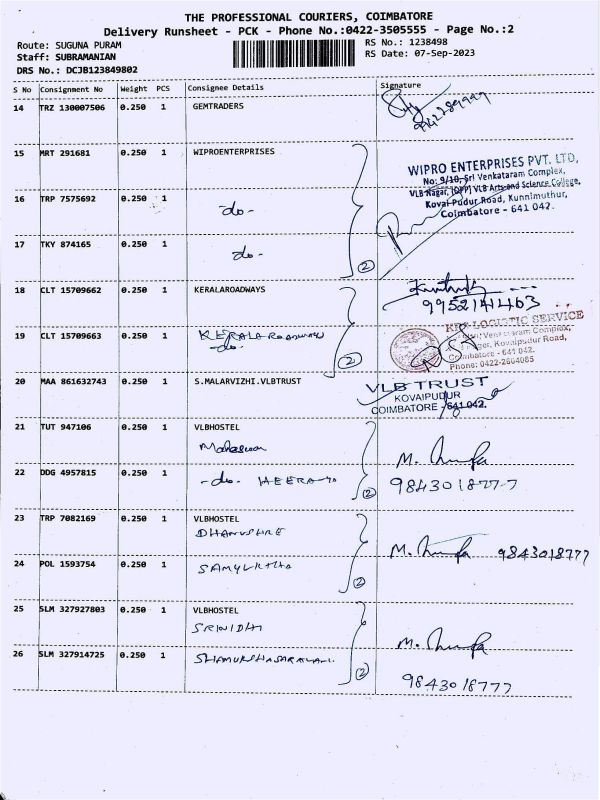 THE PROFESSIONAL COURIERS, COIMBATORE
Delivery Runsheet - PCK - Phone No.:0422-3505555 - Page No.:2
Route: SUGUNA PURAM
RS No.: 1238498
Staff: SUBRAMANIAN
RS Date: 07-Sep-2023
DRS No.: DCJB123849802
S No Consignment No Weight PCS Consignee Details Signature
14 TRZ 130007506 0.250 1 GEMTRADERS
15 MRT 291681 0.250 1 WIPROENTERPRISES
WIPRO ENTERPRISES PVT. LTD,
No: 9/10, Sri Venkataram Complex,
VLB Nagar, (OPP) VLB Arts and Science College,
Kovai Pudur Road, Kunnimuthur,
Coimbatore - 641 042.
16 TRP 7575692 0.250 1 -do-
17 TKY 874165 0.250 1 -do-
2
18 CLT 15709662 0.250 1 KERALAROADWAYS
9952141463
19 CLT 15709663 0.250 1 KERALA ROADWAYS
-do-
2
LOGISTIC SERVICE
Complex,
Kovaipudur Road,
Coimbatore - 641 042.
Phone: 0422-2604085
20 MAA 861632743 0.250 1 S.MALARVIZHI.VLBTRUST
VLB TRUST
KOVAIPUDUR
COIMBATORE - 641 042.
21 TUT 947106 0.250 1 VLBHOSTEL
22 DDG 4957815 0.250 1 -do-
2
9843018777
23 TRP 7082169 0.250 1 VLBHOSTEL
DHANUSHRE
9843018777
24 POL 1593754 0.250 1
2
25 SLM 327927803 0.250 1 VLBHOSTEL
SRINIDHI
26 SLM 327914725 0.250 1
2
9843018777